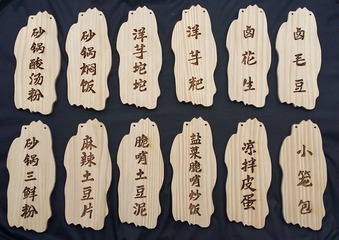 砂锅酸汤粉
砂锅焖饭
洋芋坨坨
洋芋粑
卤花生
卤毛豆
砂锅三鲜粉
麻辣土豆片
脆哨土豆泥
盐菜脆哨炒饭
凉拌皮蛋
小笼包